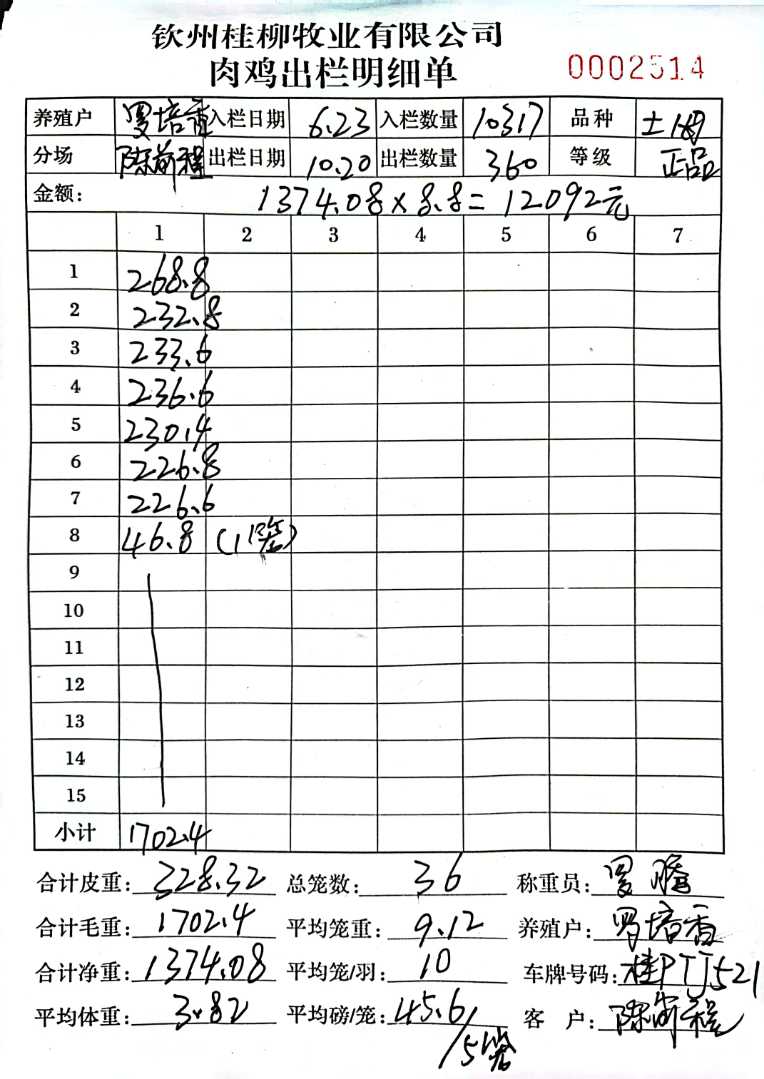 钦州桂柳牧业有限公司
肉鸡出栏明细单 0002514
养殖户 罗培香 入栏日期 6.23 入栏数量 10317 品种 土
分场 出栏日期 10.20 出栏数量 360 等级 正品
金额: 1374.08×8.8=12092元
1 2 3 4 5 6 7
1 268.8
2 232.8
3 233.6
4 236.6
5 230.4
6 226.8
7 226.6
8 46.8 (1
9
10
11
12
13
14
15
小计 1702.4
合计皮重: 328.32 总笼数: 36 称重员: 罗
合计毛重: 1702.4 平均笼重: 9.12 养殖户: 罗培香
合计净重: 1374.08 平均笼/羽: 10 车牌号码: 桂PTJ521
平均体重: 3.82 平均磅/笼: 45.6 客 户: 陈
/5